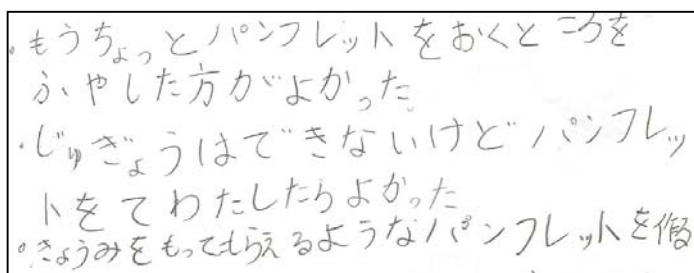 ・もうちょっとパンフレットをおくところを
ふやした方がよかった
・じゅぎょうはできないけどパンフレッ
トをてわたしたらよかった
・きょうみをもってもらえるようなパンフレットを作る